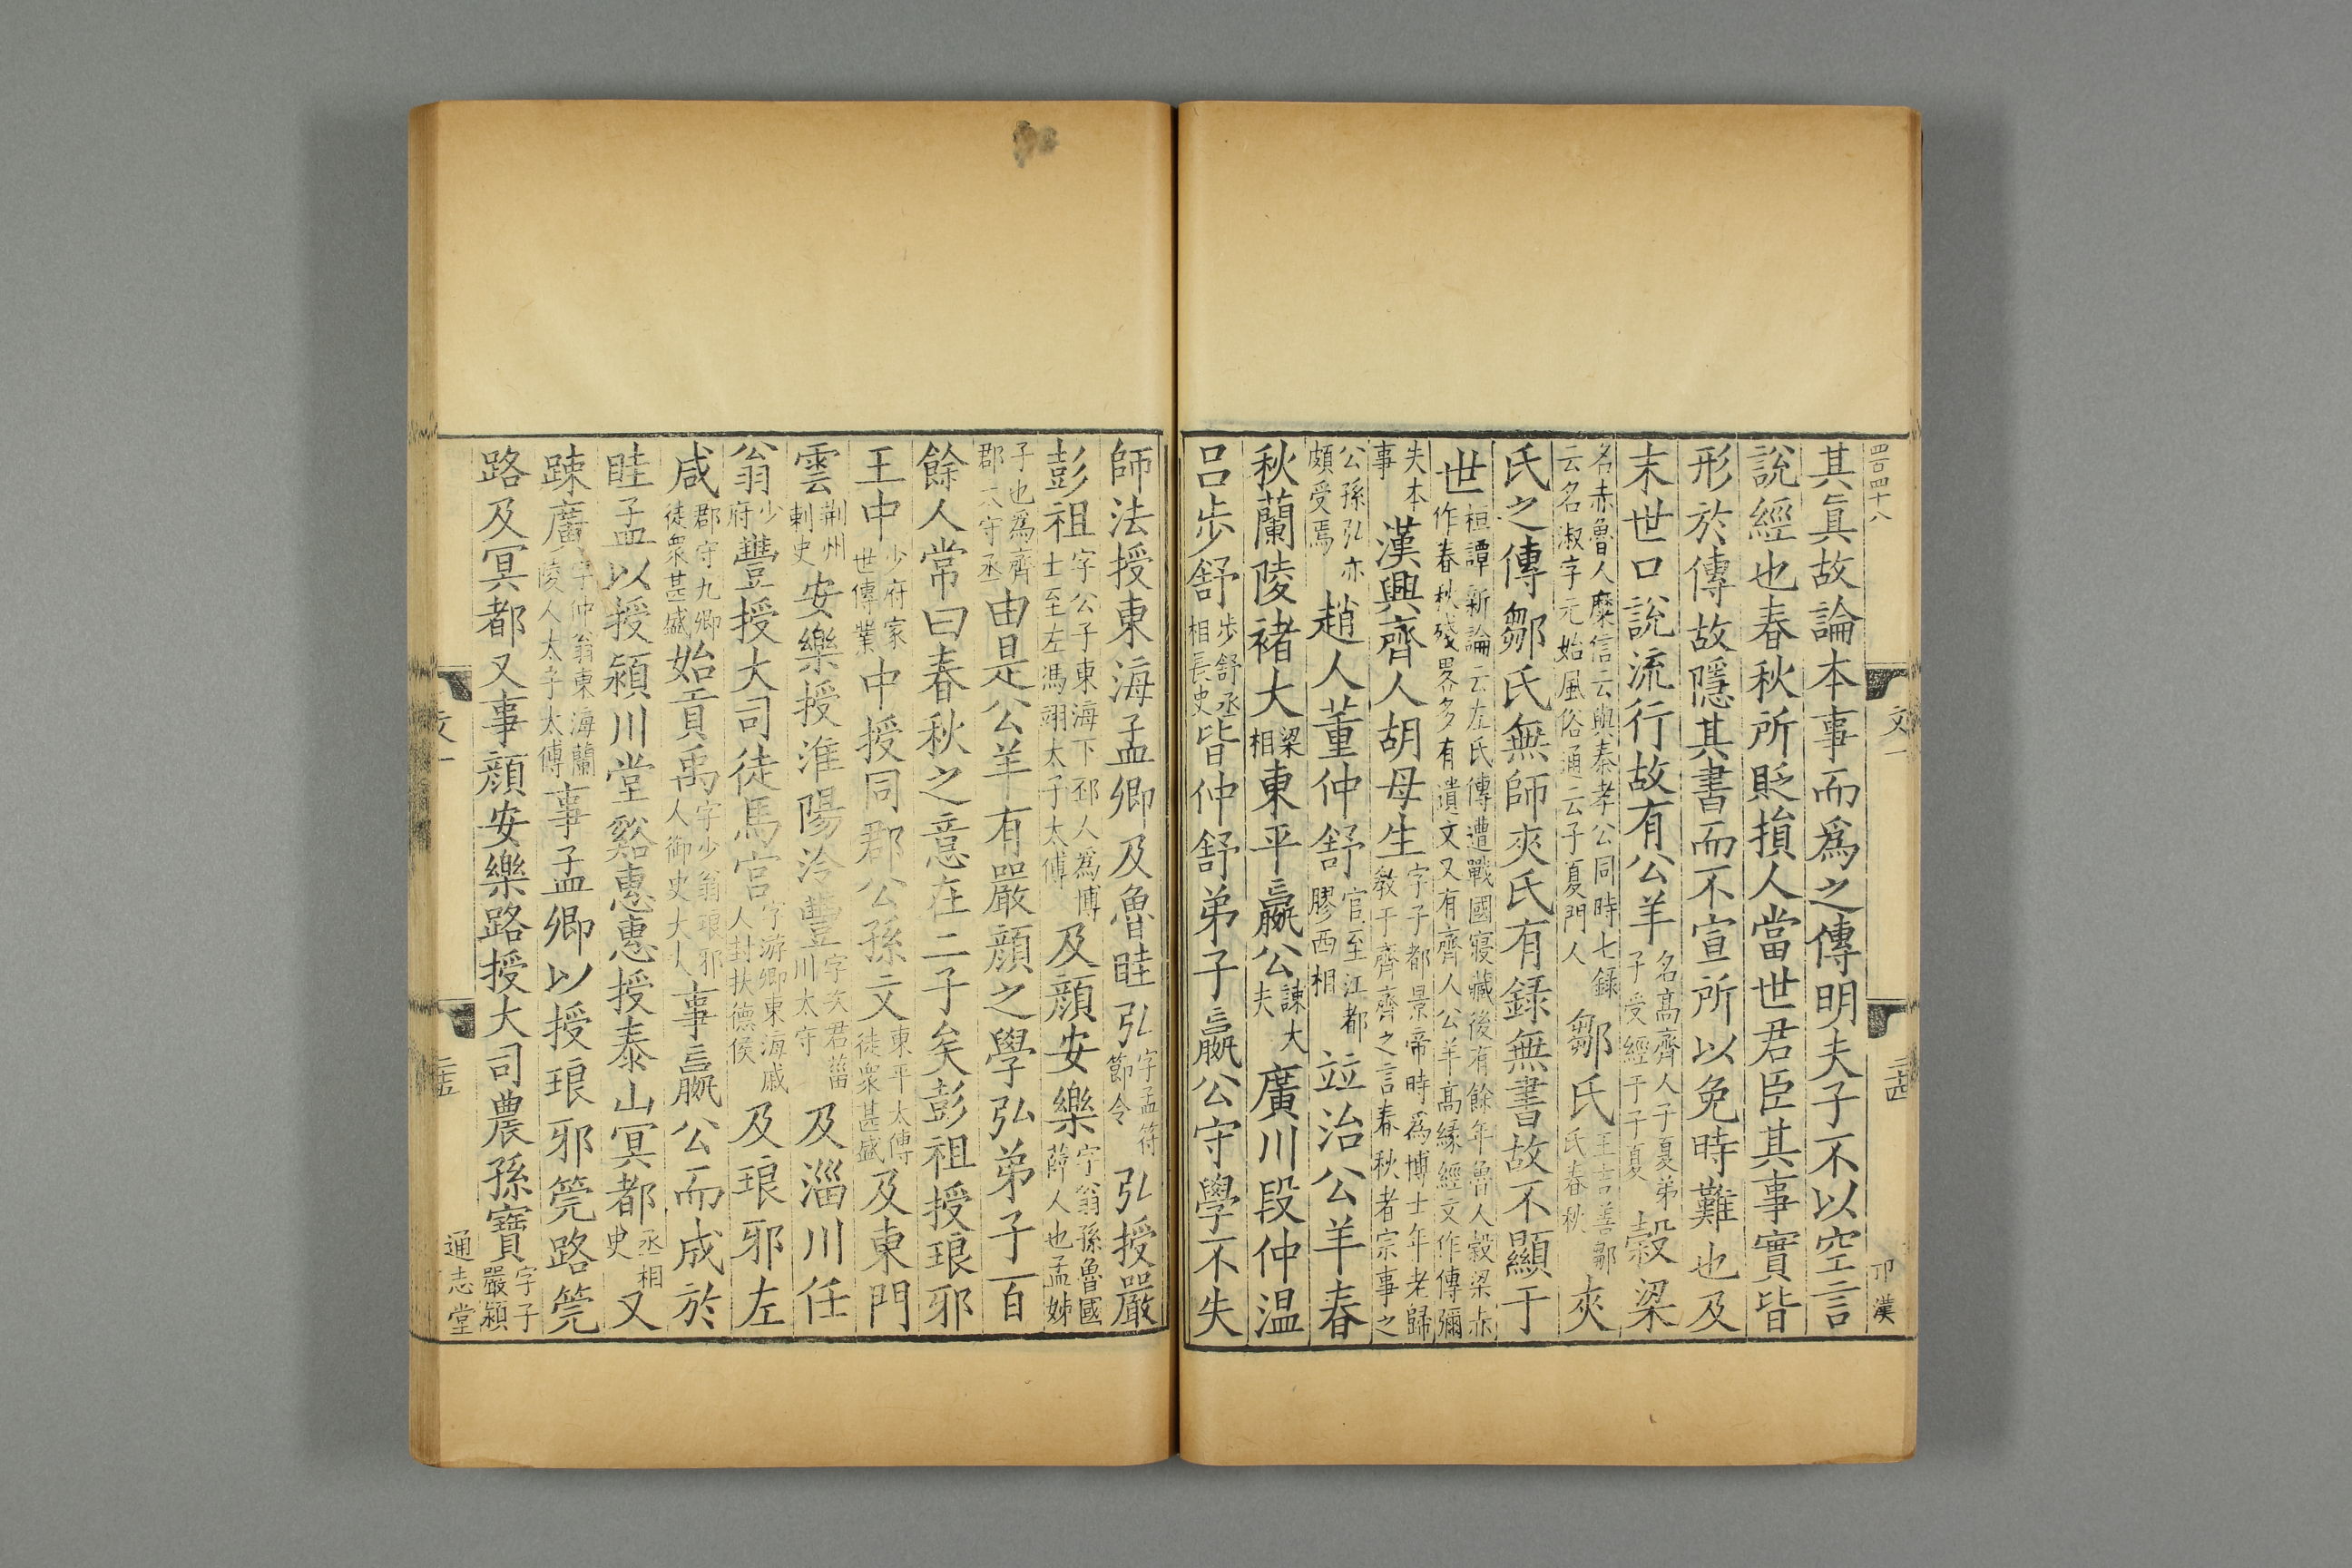 四百四十八
文一
二十四
卭 漢
其眞故論本事而爲之傳明夫子不以空言
說經也春秋所貶損人當世君臣其事實皆
形於傳故隱其書而不宣所以免時難也及
末世口說流行故有公羊名髙齊人子夏弟子受經于子夏榖梁
名赤魯人糜信云與秦孝公同時七録云名淑字元始風俗通云子夏門人鄒氏王吉善鄒氏春秋夾
氏之傳鄒氏無師夾氏有録無書故不顯于
世桓譚新論云左氏傳遭戰國寑藏後有餘年魯人榖梁赤作春秋殘畧多有遺文又有齊人公羊髙縁經文作傳彌
失本事漢興齊人胡母生字子都景帝時爲博士年老歸敎于齊齊之言春秋者宗事之
公孫弘亦頗受焉趙人董仲舒官至江都膠西相竝治公羊春
秋蘭陵褚大梁相東平嬴公諫大夫廣川段仲温
吕步舒步舒丞相長史皆仲舒弟子嬴公守學不失
師法授東海孟卿及魯眭弘字孟符節令弘授嚴
彭祖字公子東海下邳人爲博士至左馮翊太子太傅及顔安樂字翁孫魯國薛人也孟姊
子也爲齊郡太守丞由是公羊有嚴顔之學弘弟子百
餘人常曰春秋之意在二子矣彭祖授琅邪
王中少府家世傳業中授同郡公孫文東平太傅徒衆甚盛及東門
雲荆州刺史安樂授淮陽泠豐字次君菑川太守及淄川任
翁少府豐授大司徒馬宫字游卿東海戚人封扶德侯及琅邪左
咸郡守九卿徒衆甚盛始貢禹字少翁琅邪人御史大夫事嬴公而成於
眭孟以授潁川堂谿惠惠授泰山冥都丞相史又
踈廣字仲翁東海蘭陵人太子太傅事孟卿以授琅邪筦路筦
路及冥都又事顔安樂路授大司農孫寶字子嚴潁
文一
二十五
通志堂